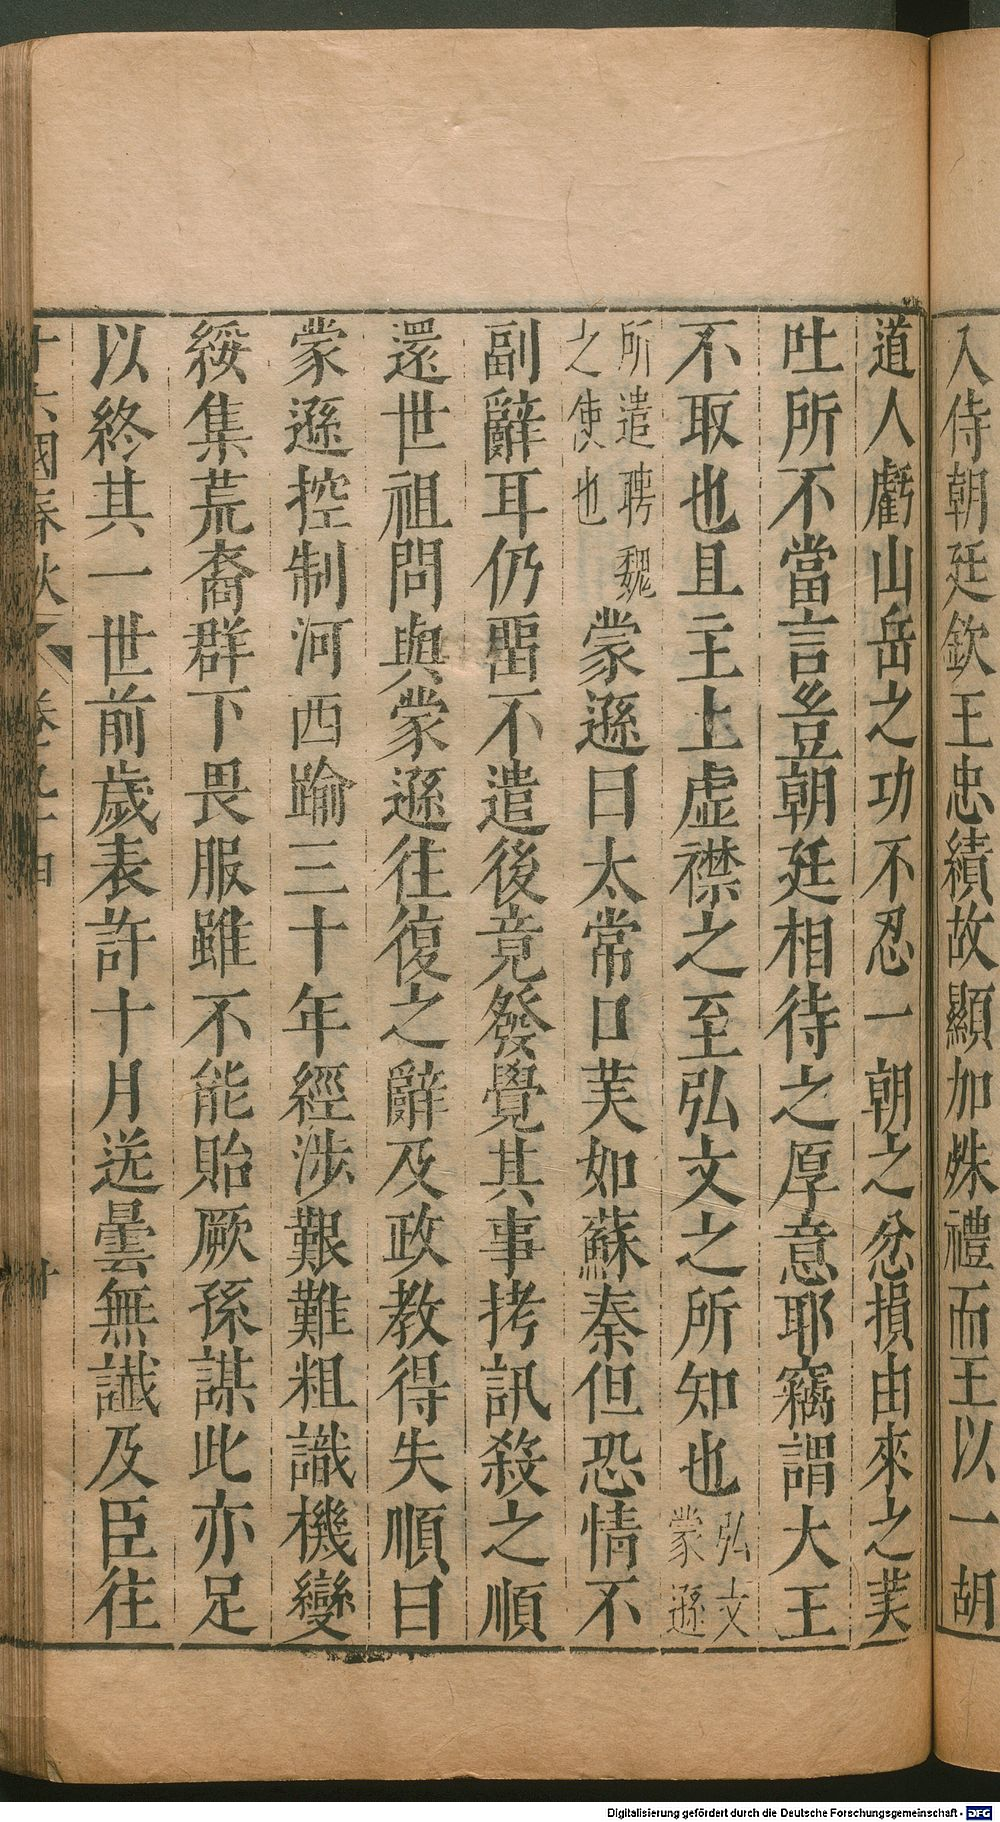 入侍朝廷欽王忠績故顯加殊禮而王以一胡
道人虧山岳之功不忍一朝之忿損由來之美
吐所不當言豈朝廷相待之厚意耶竊謂大王
不取也且主上虛襟之至弘文之所知也弘文
蒙遜
所遣聘魏
之使也
蒙遜曰太常口美如蘇秦但恐情不
副辭耳仍畱不遣後竟發覺其事拷訊殺之順
還世祖問與蒙遜往復之辭及政教得失順曰
蒙遜控制河西踰三十年經涉艱難粗識機變
綏集荒裔群下畏服雖不能貽厥孫謀此亦足
以終其一世前歲表許十月送曇無讖及臣往
十六國春秋 卷九十四 廿
Digitalisierung gefördert durch die Deutsche Forschungsgemeinschaft - DFG